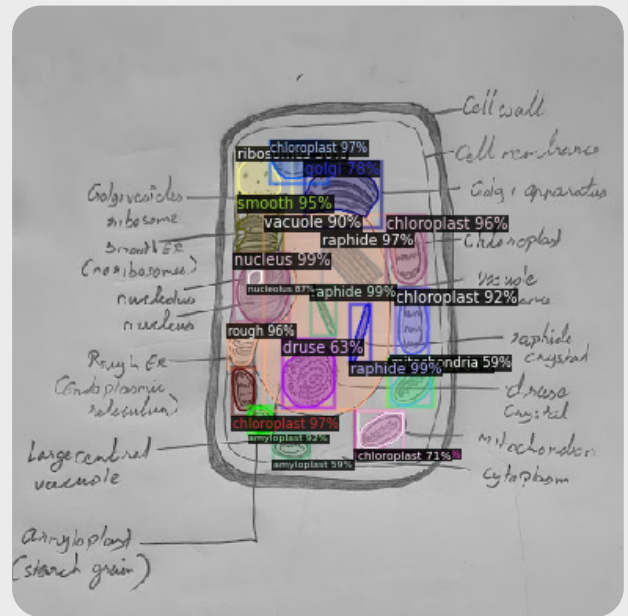 Cell wall
Cell membrane
Golgi apparatus
Chloroplast
raphide
crystal
druse
crystal
mitochondrion
cytoplasm
Golgi vesicles
ribosome
smooth ER
(no ribosomes)
nucleolus
nucleus
Rough ER
(Endoplasmic
reticulum)
Large central
vacuole
amyloplast
(starch grain)
chloroplast 97%
golgi 78%
smooth 95%
vacuole 90%
chloroplast 96%
raphide 97%
nucleus 99%
nucleolus 87%
raphide 99%
chloroplast 92%
rough 96%
druse 63%
mitochondria 59%
raphide 99%
chloroplast 97%
amyloplast 92%
amyloplast 59%
chloroplast 71%